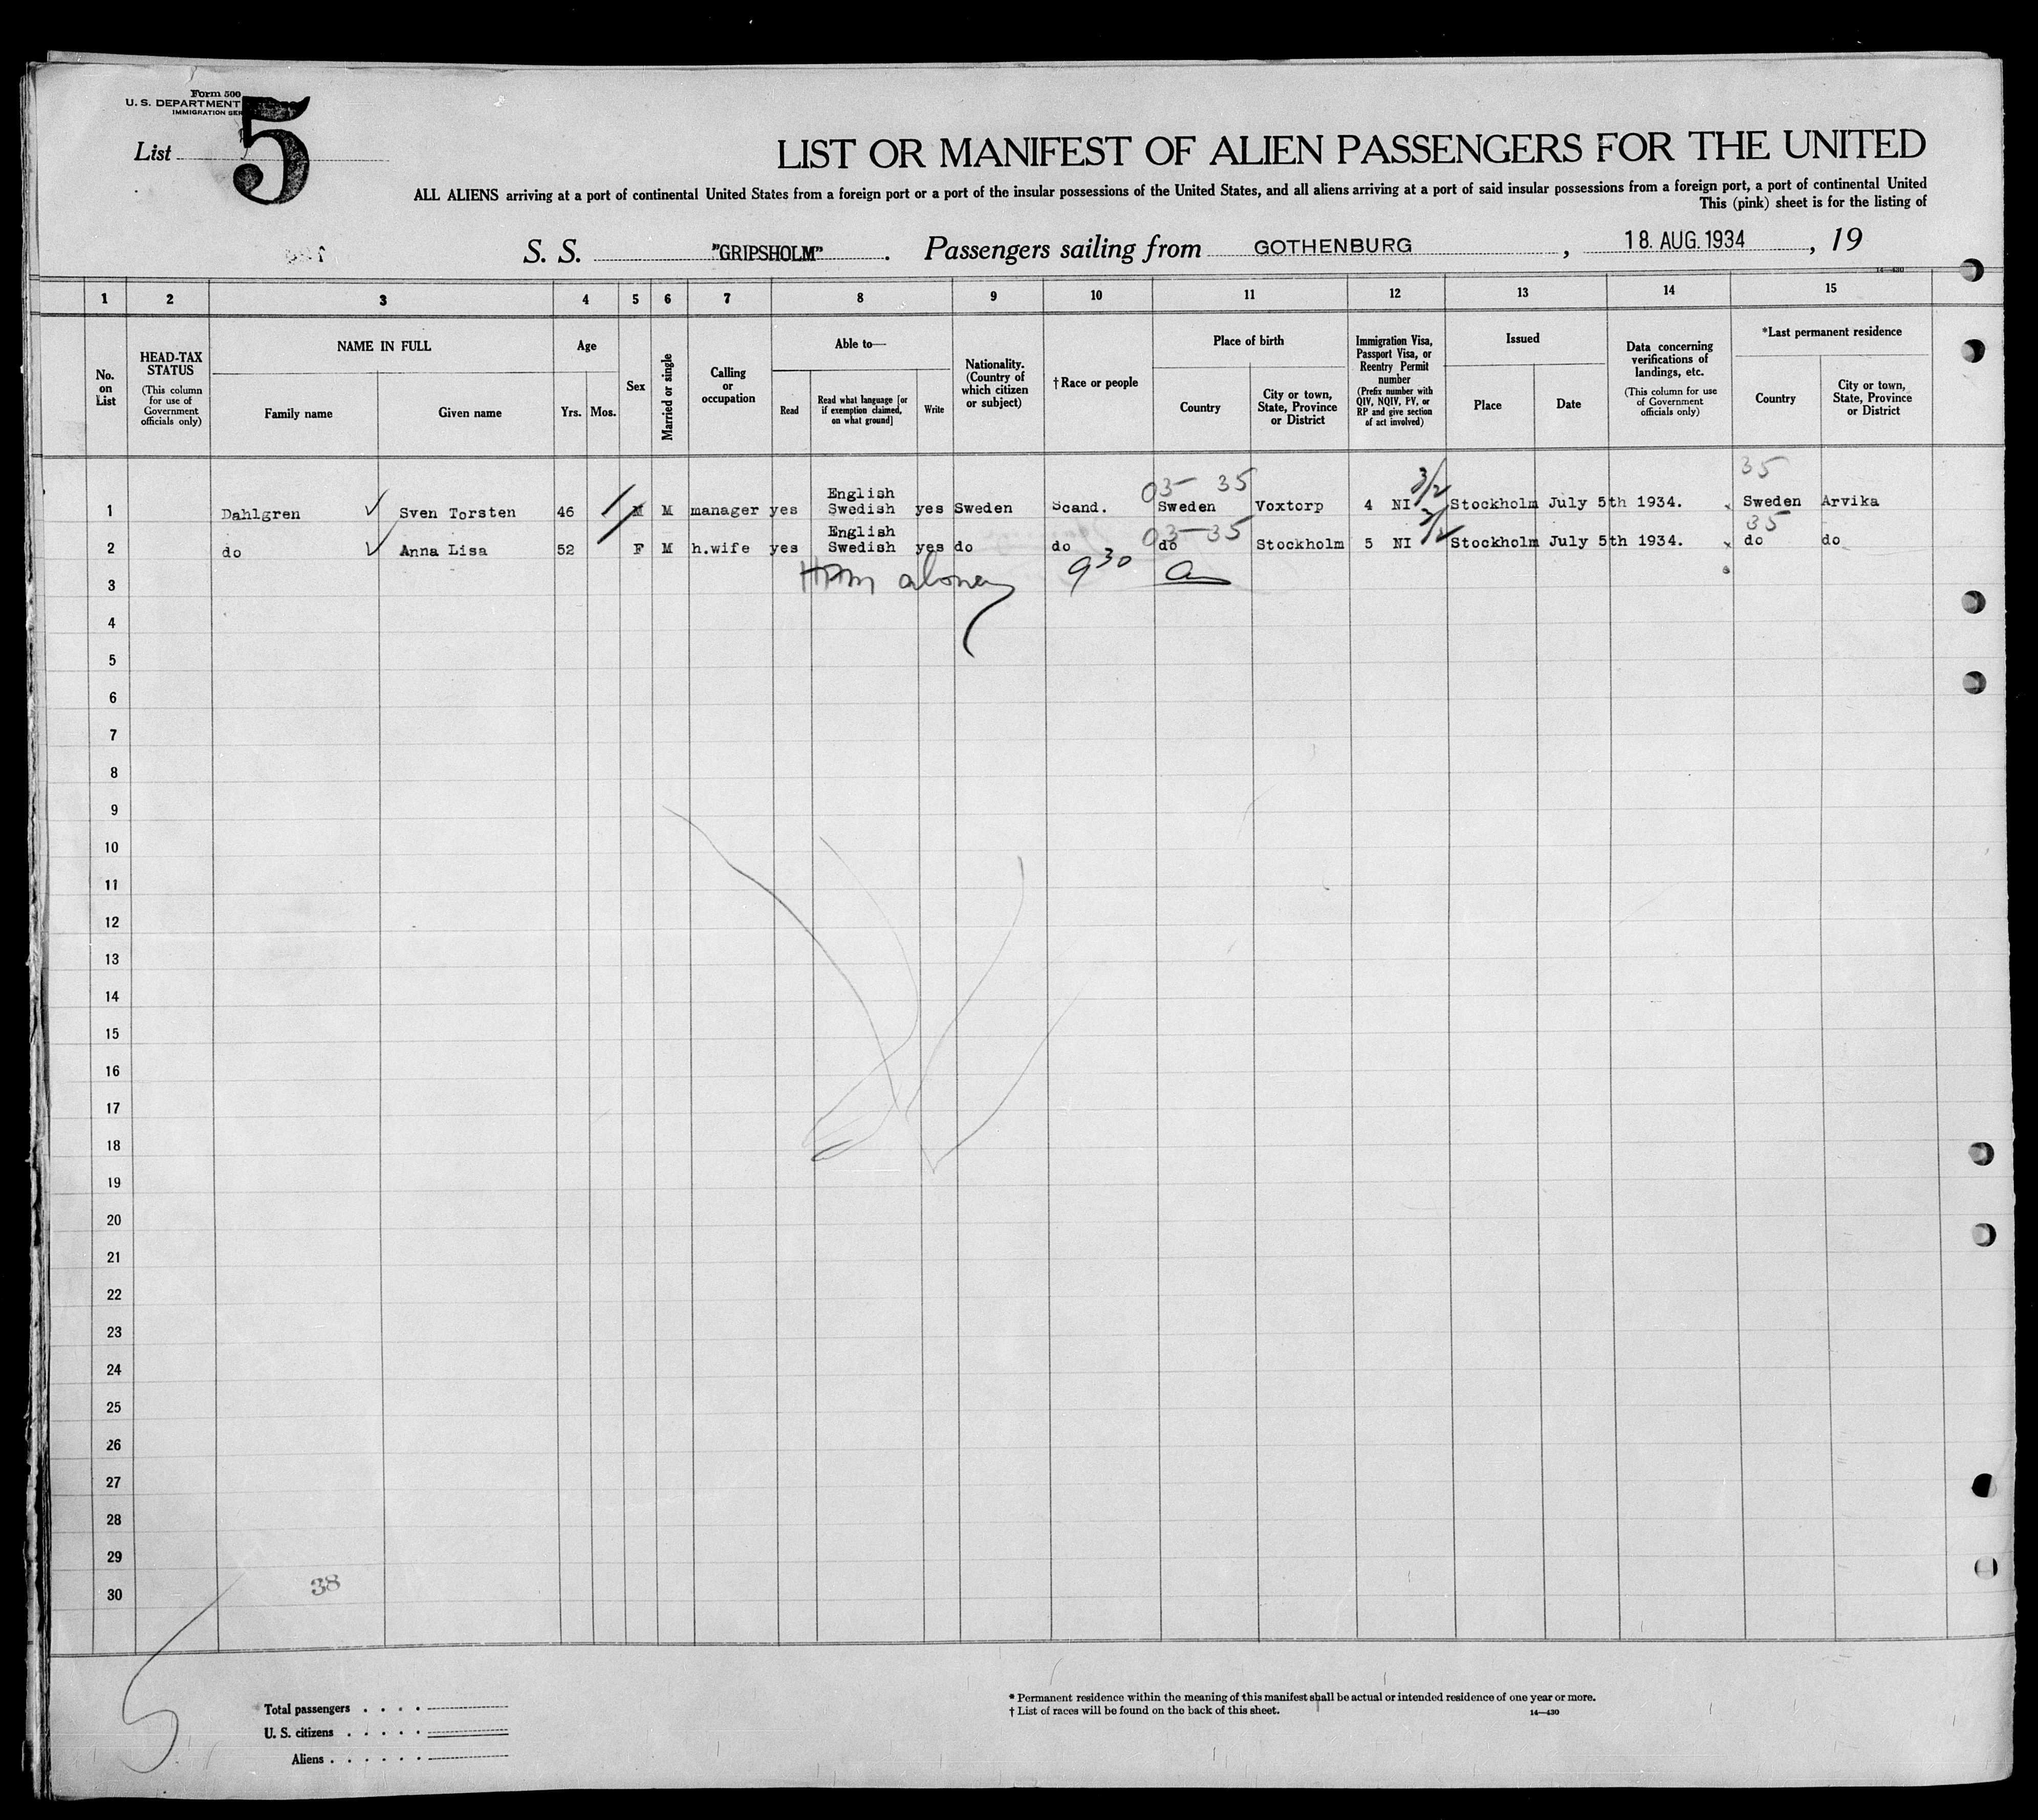 Form 500
U. S. DEPARTMENT
IMMIGRATION SER
List 5
LIST OR MANIFEST OF ALIEN PASSENGERS FOR THE UNITED
ALL ALIENS arriving at a port of continental United States from a foreign port or a port of the insular possessions of the United States, and all aliens arriving at a port of said insular possessions from a foreign port, a port of continental United
This (pink) sheet is for the listing of
S. S. "GRIPSHOLM". Passengers sailing from GOTHENBURG, 18. AUG. 1934, 19
14—430
1 2 3 4 5 6 7 8 9 10 11 12 13 14 15
No. on List
HEAD-TAX STATUS
(This column for use of Government officials only)
NAME IN FULL
Family name
Given name
Age
Yrs.
Mos.
Sex
Married or single
Calling or occupation
Able to—
Read
Read what language [or if exemption claimed, on what ground]
Write
Nationality. (Country of which citizen or subject)
†Race or people
Place of birth
Country
City or town, State, Province or District
Immigration Visa, Passport Visa, or Reentry Permit number
(Prefix number with QIV, NQIV, PV, or RP and give section of act involved)
Issued
Place
Date
Data concerning verifications of landings, etc.
(This column for use of Government officials only)
*Last permanent residence
Country
City or town, State, Province or District
03 35 3/2 35
1 Dahlgren Sven Torsten 46 M M manager yes English Swedish yes Sweden Scand. Sweden Voxtorp 4 NI Stockholm July 5th 1934. Sweden Arvika
03-35 3/2 35
2 do Anna Lisa 52 F M h.wife yes English Swedish yes do do do Stockholm 5 NI Stockholm July 5th 1934. do do
3 9 30
4
5
6
7
8
9
10
11
12
13
14
15
16
17
18
19
20
21
22
23
24
25
26
27
28
29
30
38
5
Total passengers
U. S. citizens
Aliens
* Permanent residence within the meaning of this manifest shall be actual or intended residence of one year or more.
† List of races will be found on the back of this sheet.
14—430